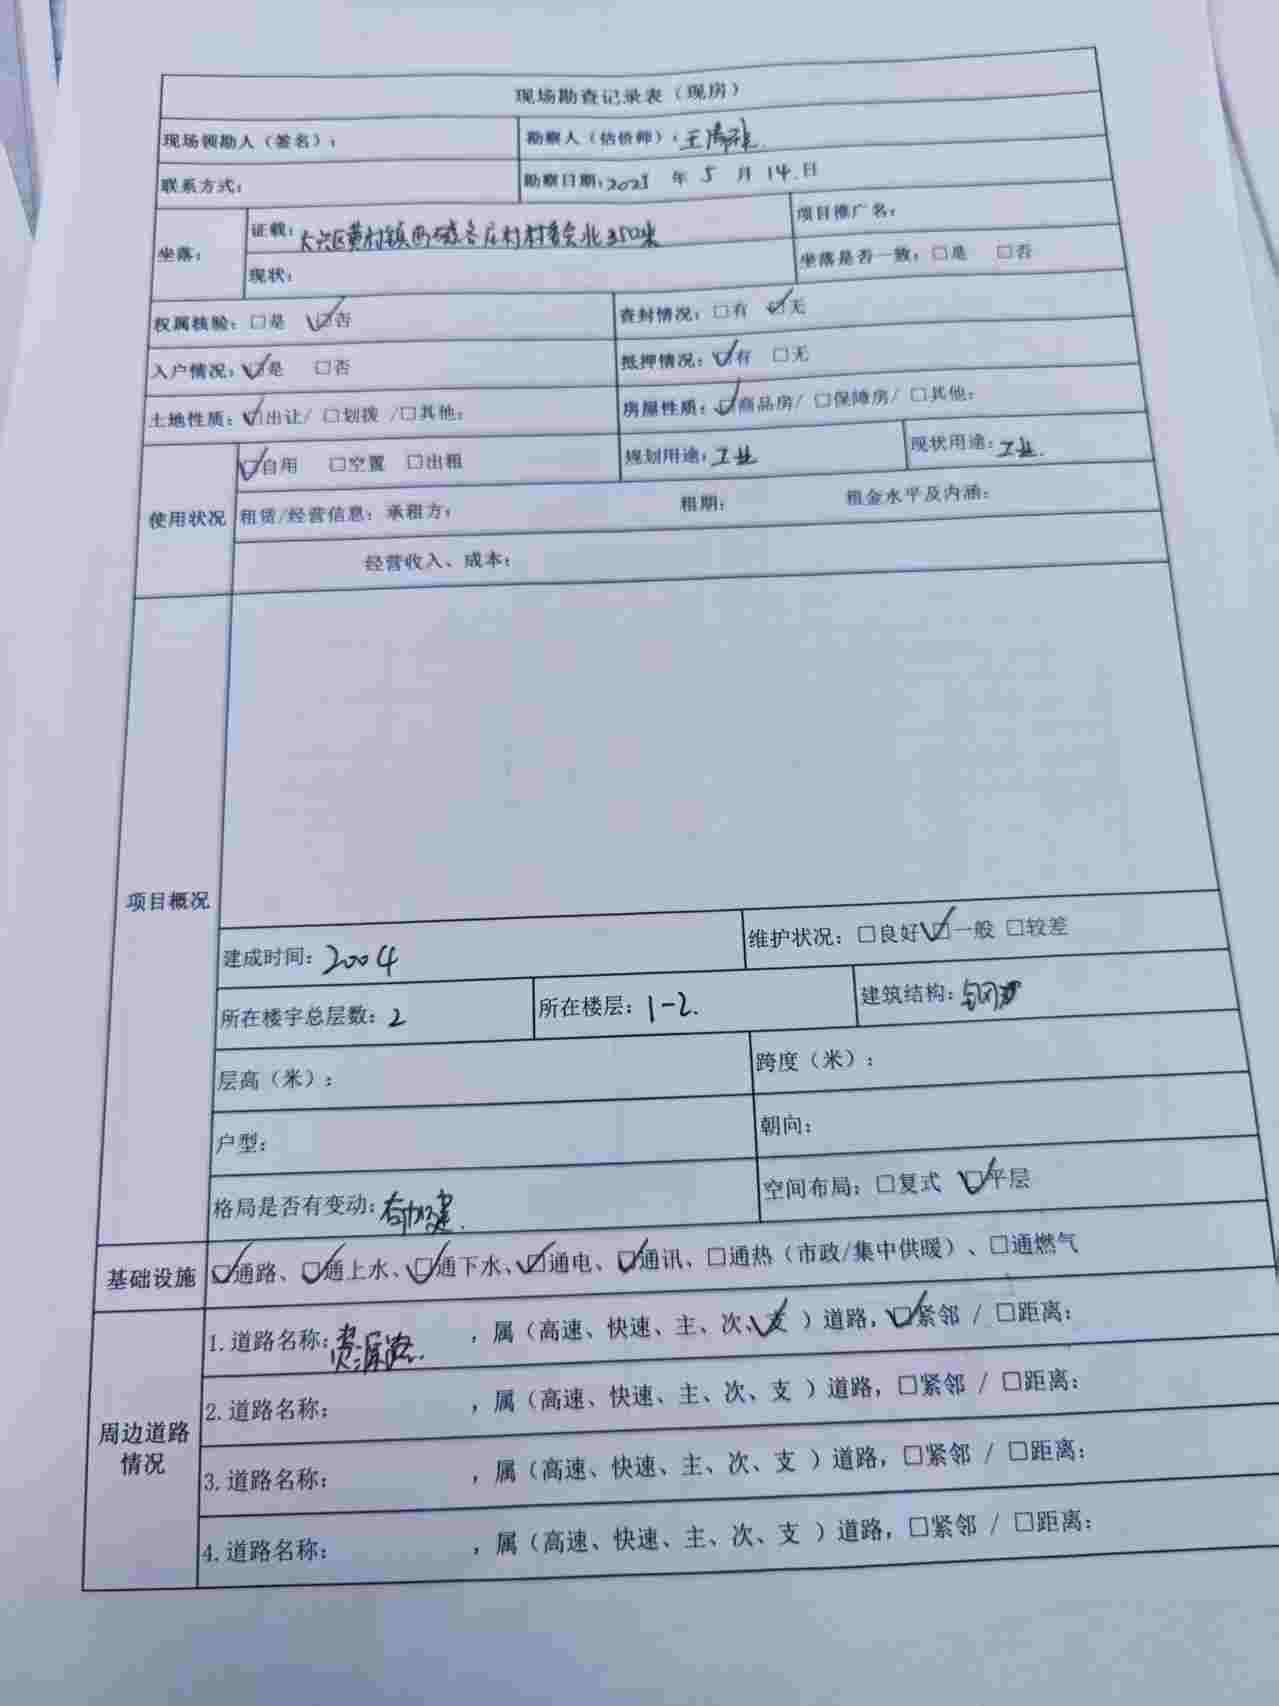 现场勘查记录表（现房）
现场领勘人（签名）： 勘察人（估价师）：王
联系方式： 勘察日期：2021 年 5 月 14 日
坐落： 证载：大兴区黄村镇西磁各庄村村委会北350米 项目推广名：
现状： 坐落是否一致：□是 □否
权属核验：□是 ☑否 查封情况：□有 ☑无
入户情况：☑是 □否 抵押情况：☑有 □无
土地性质：☑出让/ □划拨 /□其他： 房屋性质：☑商品房/ □保障房/ □其他：
使用状况 ☑自用 □空置 □出租 规划用途：工业 现状用途：工业
租赁/经营信息：承租方： 租期： 租金水平及内涵：
经营收入、成本：
项目概况
建成时间：2004 维护状况：□良好 ☑一般 □较差
所在楼宇总层数：2 所在楼层：1-2. 建筑结构：钢
层高（米）： 跨度（米）：
户型： 朝向：
格局是否有变动：有加建. 空间布局：□复式 ☑平层
基础设施 ☑通路、☑通上水、☑通下水、☑通电、☑通讯、□通热（市政/集中供暖）、□通燃气
周边道路情况
1.道路名称： ，属（高速、快速、主、次、支√）道路，☑紧邻 / □距离：
2.道路名称： ，属（高速、快速、主、次、支 ）道路，□紧邻 / □距离：
3.道路名称： ，属（高速、快速、主、次、支 ）道路，□紧邻 / □距离：
4.道路名称： ，属（高速、快速、主、次、支 ）道路，□紧邻 / □距离：